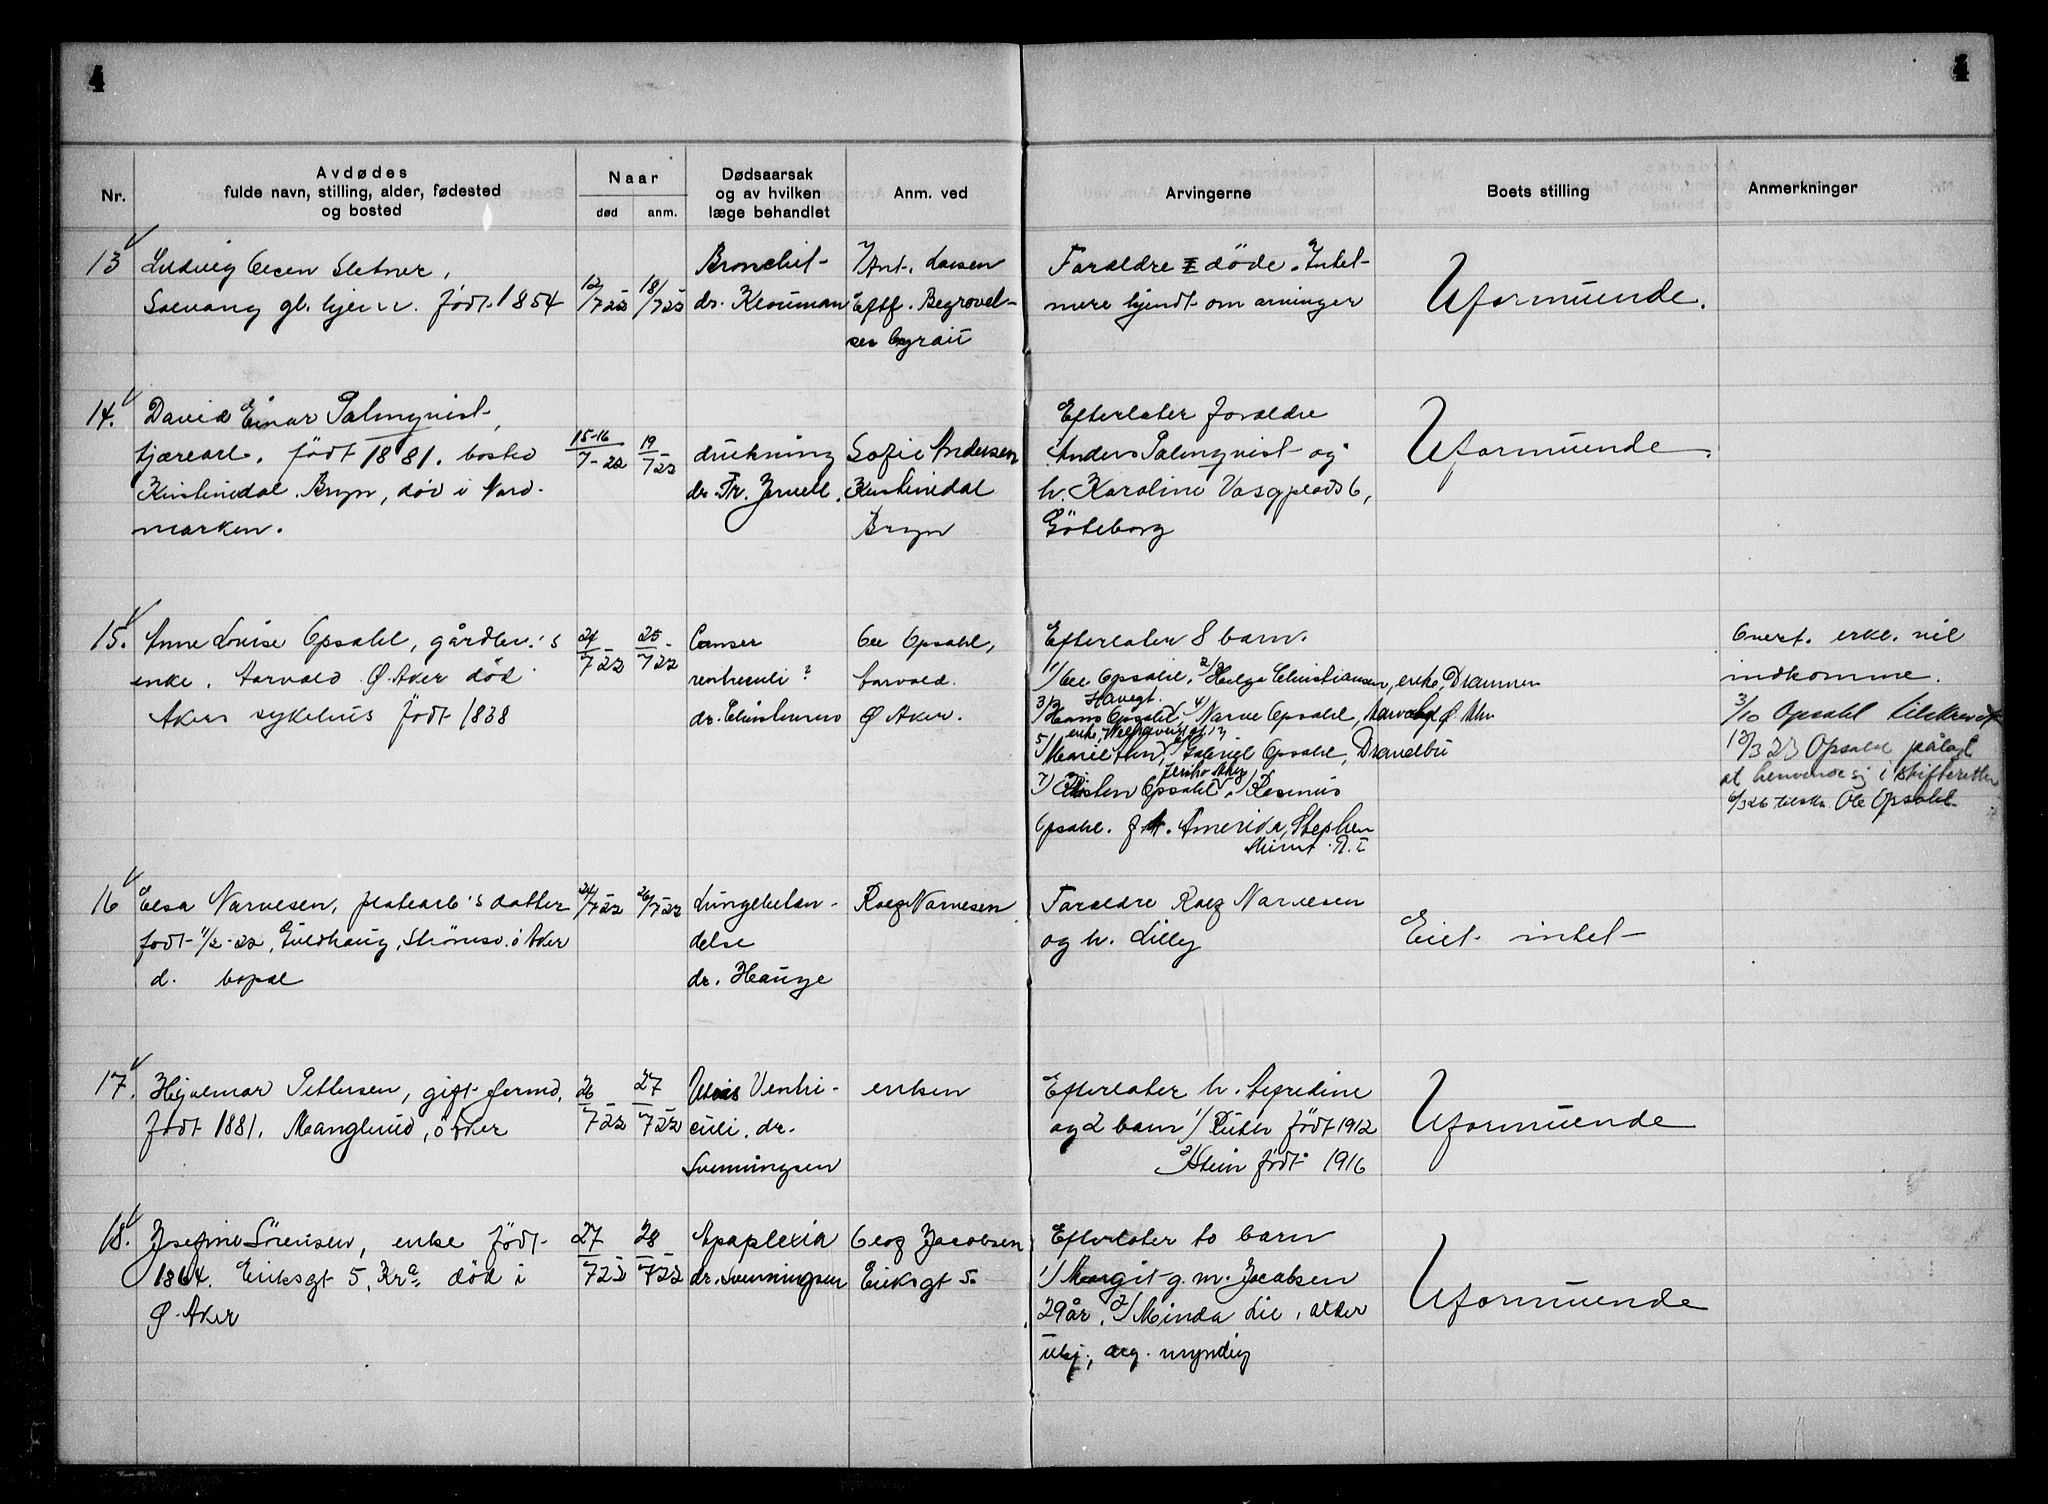 4
4
Nr.
Avdødes
fulde navn, stilling, alder, fødested
og bosted
Naar
død
anm.
Dødsaarsak
og av hvilken
læge behandlet
Anm. ved
Arvingerne
Boets stilling
Anmerkninger
13
Ludvig Olsen Sletner,
Solvang gl. hjem. født 1854
12/7 22
18/7 22
Bronchit
dr. Klouman
Ant. Larsen
Eftf. Begravel-
ses byraü
Forældre døde. Intet
mere kjendt om arvinger
Uformuende.
14.
David Einar Palmqvist,
født 1881. bosted
Kristinedal. Bryn, død i Nord-
marken.
15-16/7-22
19/7 22
drukning
dr. Fr. Jervell.
Sofie Andersen
Kristinedal
Bryn
Efterlater forældre
Anders Palmqvist og
h. Karoline 6,
Göteborg
Uformuende.
15.
Anne Lovise Opsahl, gårdbr.'s
enke. Aarvold Ø. Aker død
Akers sykehus født 1838
24/7 22
25/7 22
Canser
ventriculi?
dr.
Ole Opsahl,
Aarvold.
Ø Aker.
Efterlater 8 barn.
1/ Ole Opsahl, 2/ Helga Christiansen, enke, Drammen
3/ Hans Opsahl, 4/ Narve Opsahl, Ø. Akr.
5/ 6/ Gabriel Opsahl,
7/ Opsahl, 8/ Rasmus
Opsahl. f. A. Amerika, Stephen
erkl. vil
indkomme.
3/10 Opsahl tilskrevet
12/3 23 Opsahl pålagt
at henvende sig i skifteretten
6/3 26 tilskr. Ole Opsahl
16
Elsa Narvesen, platearb's datter
født 11/2-22, Guldhaug, Ø Aker
d. bopæl
24/7 22
26/7 22
Lungebetæn-
delse
dr. Hauge
Rolf Narvesen
Forældre Rolf Narvesen
og h. Lilly
Eiet intet
17.
Hjalmar Pettersen, gift formd.
født 1881. Manglerud, Ø Aker
26/7 22
27/7 22
Ulcus Ventri-
culi. dr.
Svenningsen
enken
Efterlater h. Alfredine
og 2 barn 1/ Ruth født 1912
2/ Stein født 1916
Uformuende
18.
Josefine Sörensen, enke født
1864. Eriksgt 5, Kra. død i
Ø. Aker
27/7 22
28/7 22
Apoplexia
dr. Svenningsen
Olaf Jacobsen
Eriksgt 5.
Efterlater to barn
1/ Margit g. m. Jacobsen
29 år, 2/ Minda Lie, alder
ukj., dog myndig
Uformuende